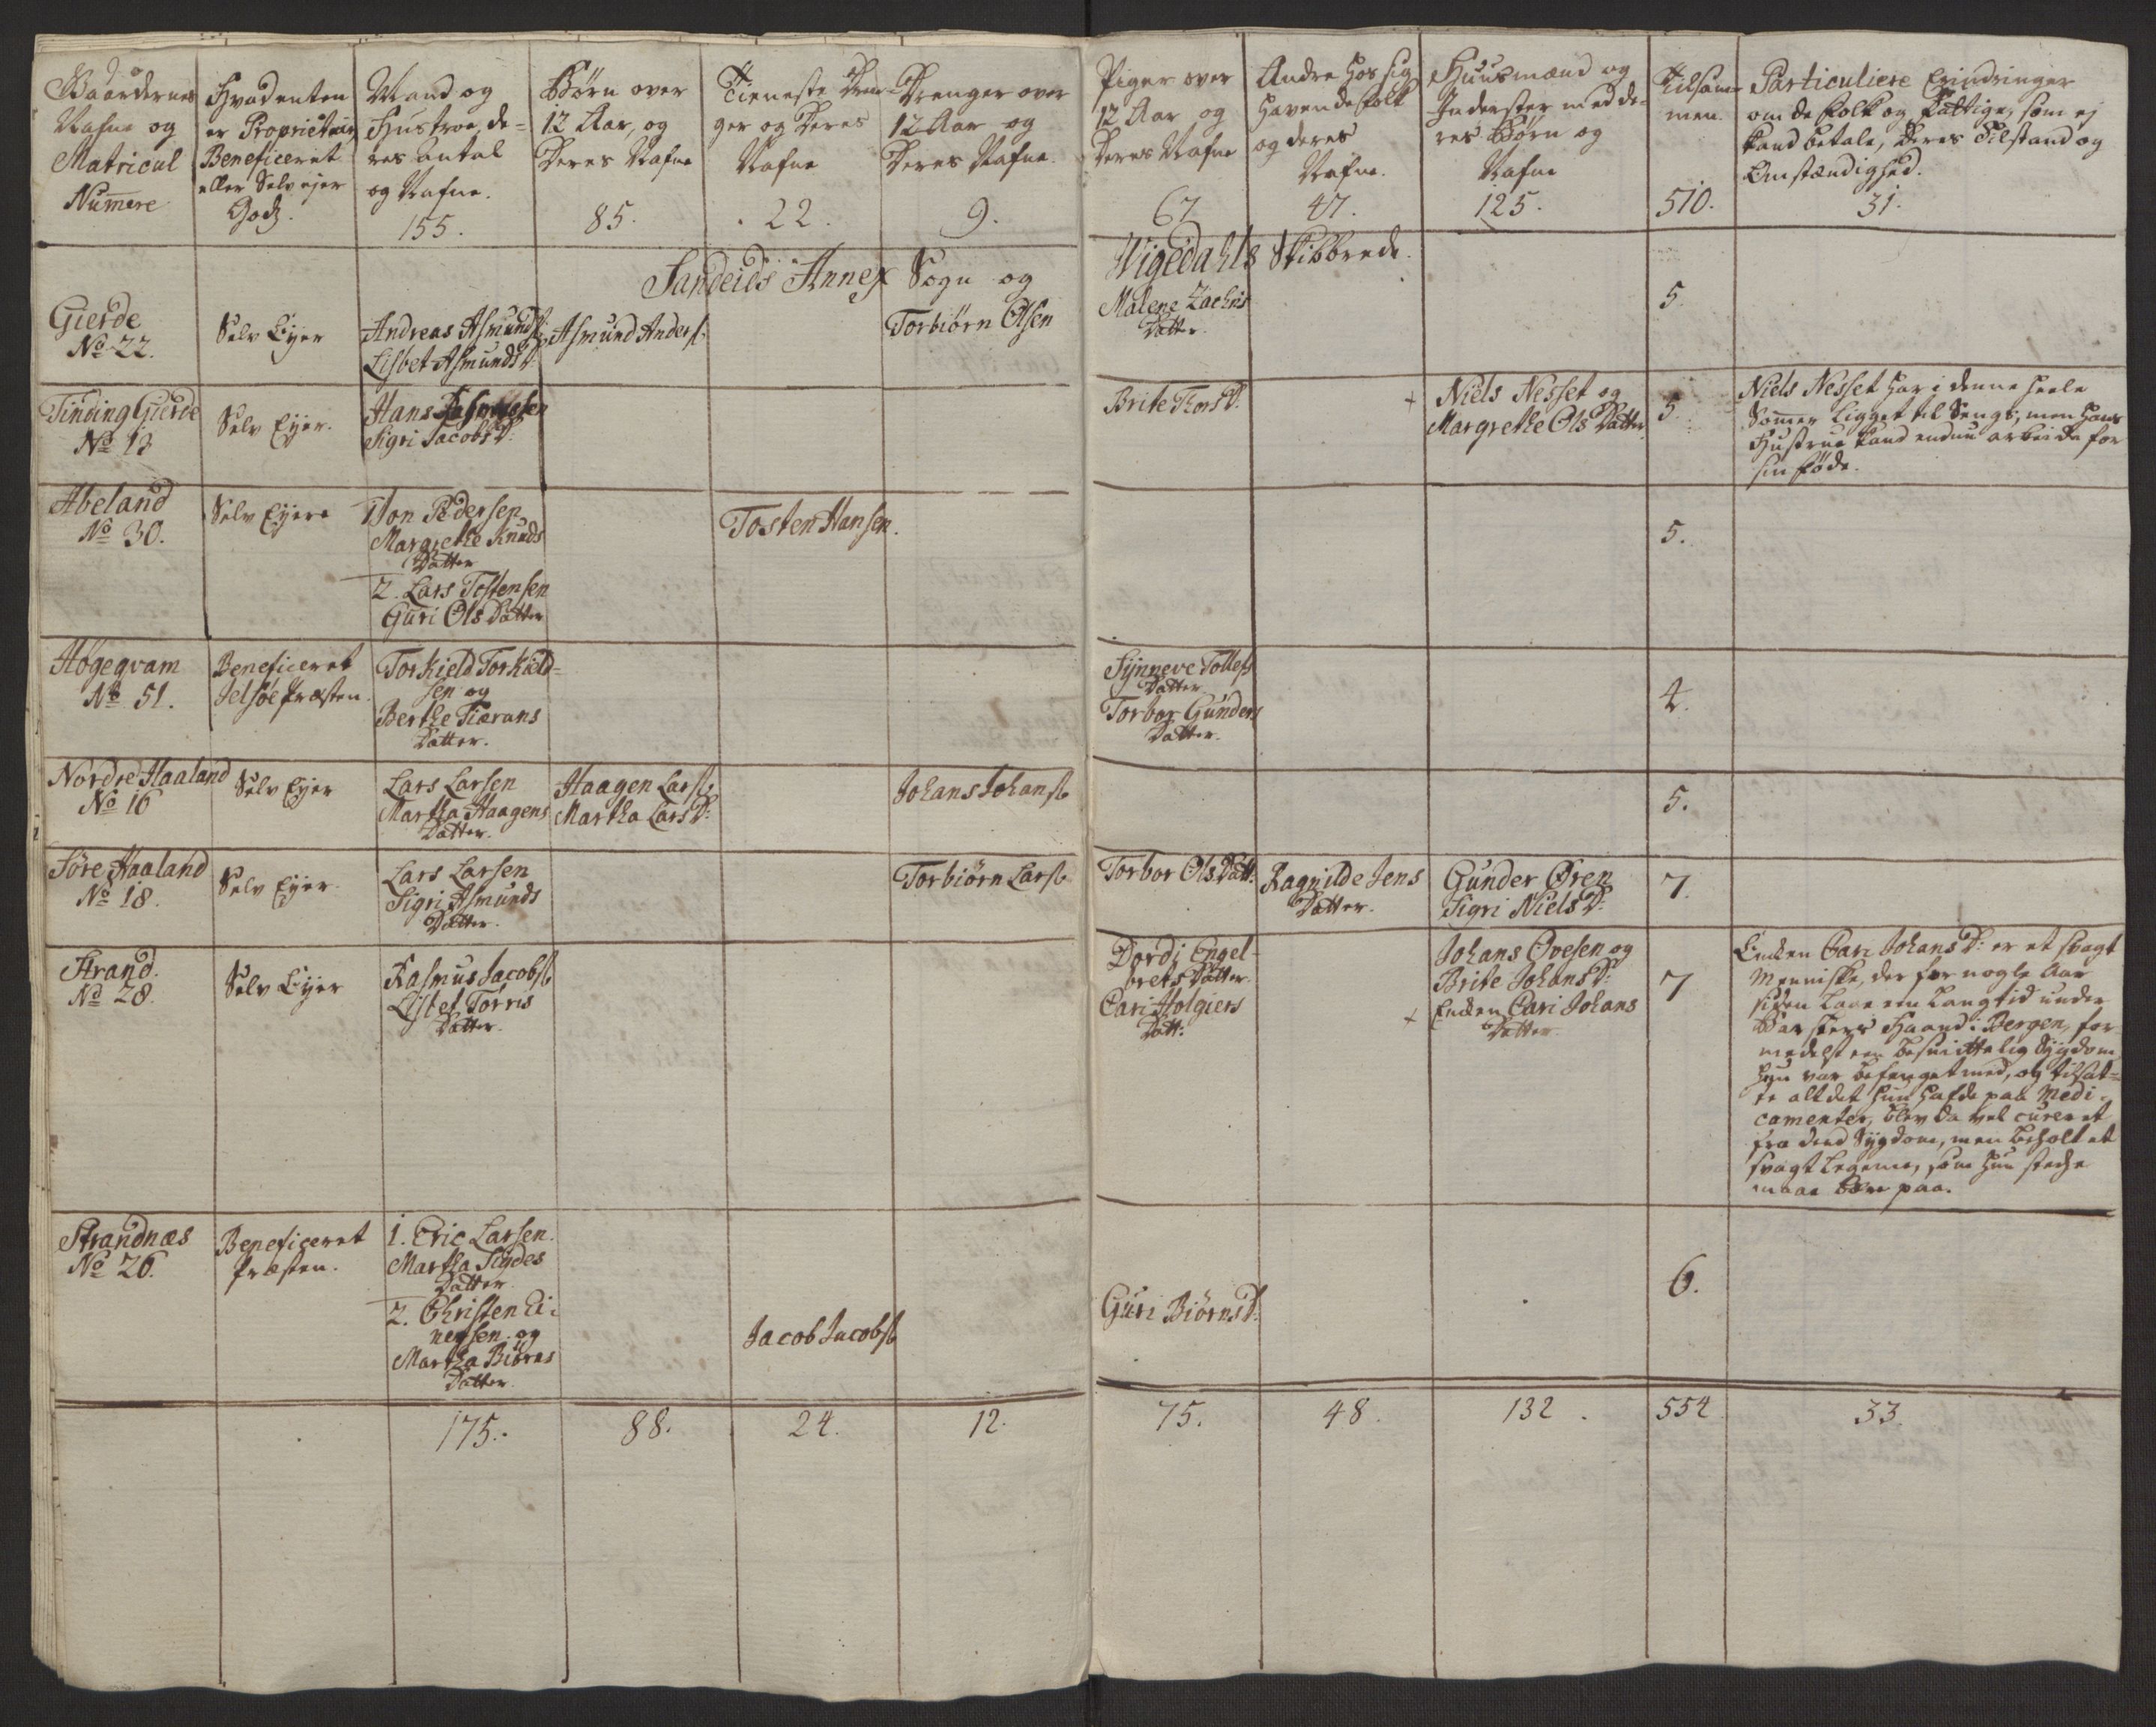 Gaardernes
Nafne og
Matricul
Numere
Hvad enten
er Proprietair
Beneficeret
eller Selv ejer
Godz.
Mand og
Hustroe, de-
res antal
og Nafne.
155.
Børn over
12 Aar, og
Deres Nafne
85.
Tieneste Dren-
ger og Deres
Nafne
22.
Drenger over
12 Aar og
Deres Nafne.
9.
Piger over
12 Aar og
Deres Nafne
67
Andre hos sig
havende folk
og deres
Nafne.
47.
Huusmænd og
Inderster med de-
res Børn og
Nafne
125.
Tilsam-
men.
510.
Particuliere Erindringer
om de folk og Fattige, som ej
kand betale, deres Tilstand og
Omstændighed.
31.
Sandeids Annex Sogn og
Wigedahls Skibbrede.
Gierde
No 22.
Selv Ejer
Andreas Asmunds.
Lisbet Asmunds D:
Asmund Anders.
Torbiørn Olsen
Malene Zachris
Datter.
5.
Tinding Gierde
No 13
Selv Ejer.
Hans Rasmussen
Sigri Jacobs D:
Brite Thors D:
+
Niels Nesset og
Margrethe Ols Datter
5.
Niels Nesset har i denne heele
Sommer ligget til Sengs, men hans
Hustrue kand enduu arbeide for
sin føde.
Abeland
No 30.
Selv Ejere
1 Jon Pedersen
Margrethe Knuds
Datter
2. Lars Tostensen
Guri Ols Datter
Tosten Hansen.
5.
Høgeqvam
No 51.
Beneficeret
Jelsøe Præsten.
Torkield Torkield-
sen og
Berthe Tiærans
Datter.
Synneve Tollefs
Datter
Torbor Gunders
Datter.
4.
Nordre Haaland
No 16
Selv Ejer
Lars Larsen
Martha Haagens
Datter.
Haagen Lars.
Martha Lars D:
Johans Johans.
5.
Søre Haaland
No 18.
Selv Ejer.
Lars Larsen
Sigri Asmunds
Datter.
Torbiørn Lars.
Torbor Ols Datt:
Ragnilde Jens
Datter.
Gunder Øren
Sigri Niels D:
7.
Strand.
No 28.
Selv Ejer
Rasmus Jacobs.
Lisbet Torris
Datter.
Dordi Engel-
brets Datter.
Cari Holgiers
Datt:
+
Johans Ovesen og
Brite Johans D:
Enken Cari Johans
Datter
7
Enken Cari Johans D: er et svagt
Menniske, der for nogle Aar
siden laae een lang tid under
Barskers Haand i Bergen, for
medelst een besmittelig Sygdom
hun var befenget med, og tilsat-
te alt det hun hafde paa Medi-
camenter, blev da vel cureret
fra dend Sygdom, men beholt et
svagt legeme, som hun stedse
maae bære paa.
Strandnæs
No 26.
Beneficeret
Præsten.
1. Eric Larsen.
Martha Siudes
Datter
2. Christen Ei-
nersen og
Martha Biørns
Datter
Jacob Jacobs.
Guri Biørns D:
6.
175.
88.
24.
12.
75.
48.
132.
554
33.